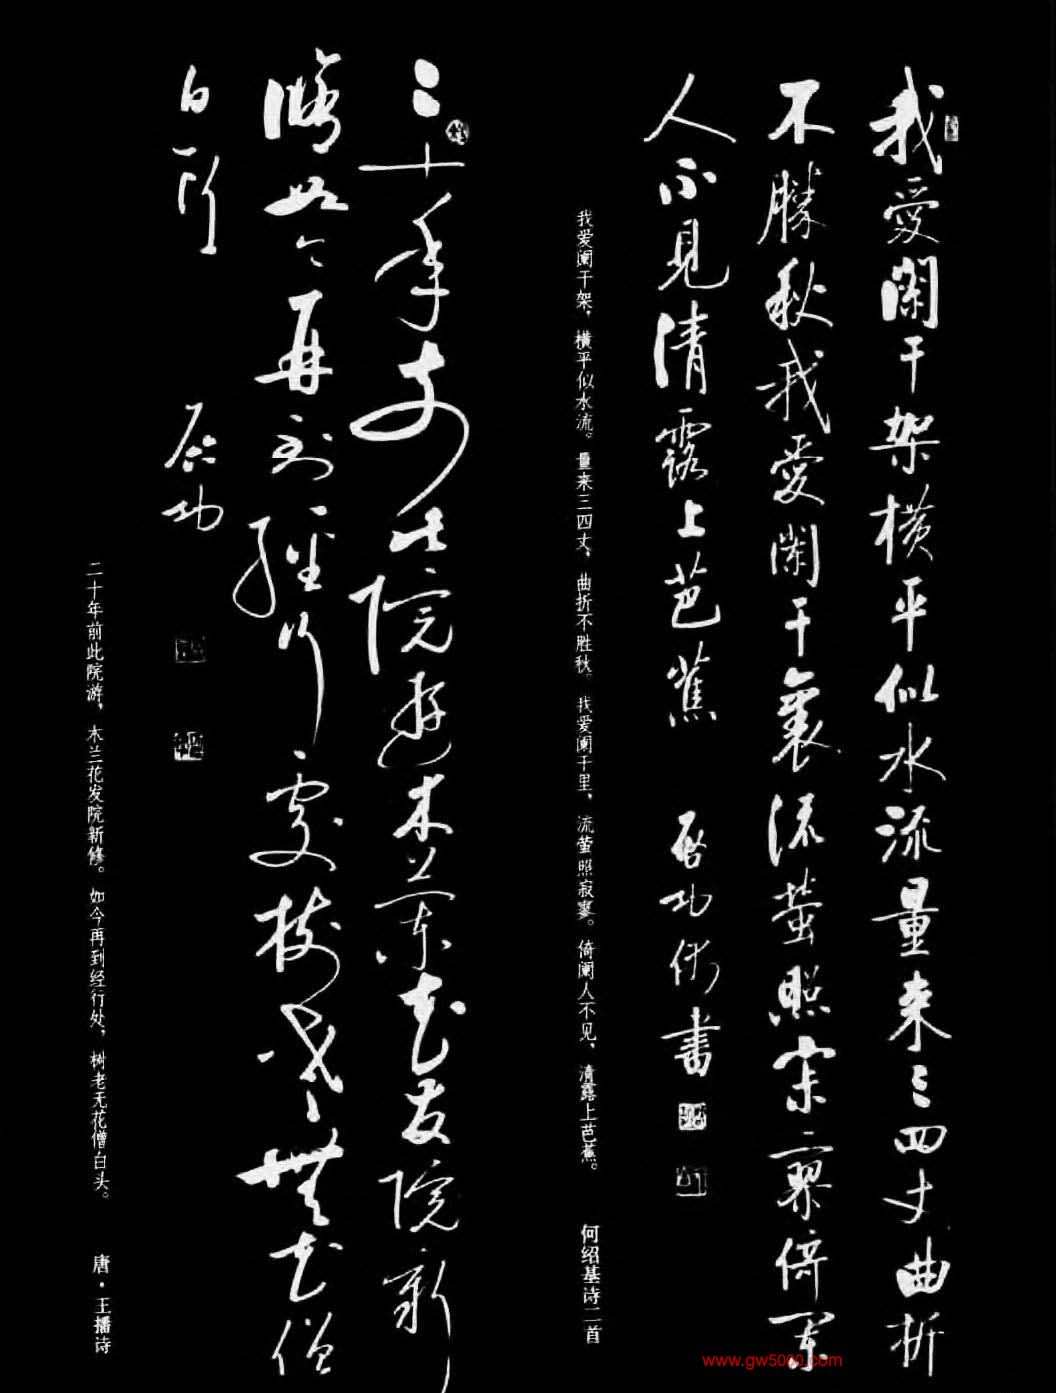 我愛闌干架橫平似水流量来三四丈曲折
不勝秋我愛闌干裏流螢照寂寥倚闌
人不見清露上芭蕉 启功書
我爱阑干架，横平似水流。量来三四丈，曲折不胜秋。我爱阑干里，流萤照寂寥。倚阑人不见，清露上芭蕉。 何绍基诗二首
二十年前此院遊木蘭花发院新
脩如今再到經行處樹老無花僧
白頭 启功
二十年前此院游，木兰花发院新修。如今再到经行处，树老无花僧白头。 唐·王播诗
www.gw5000.com